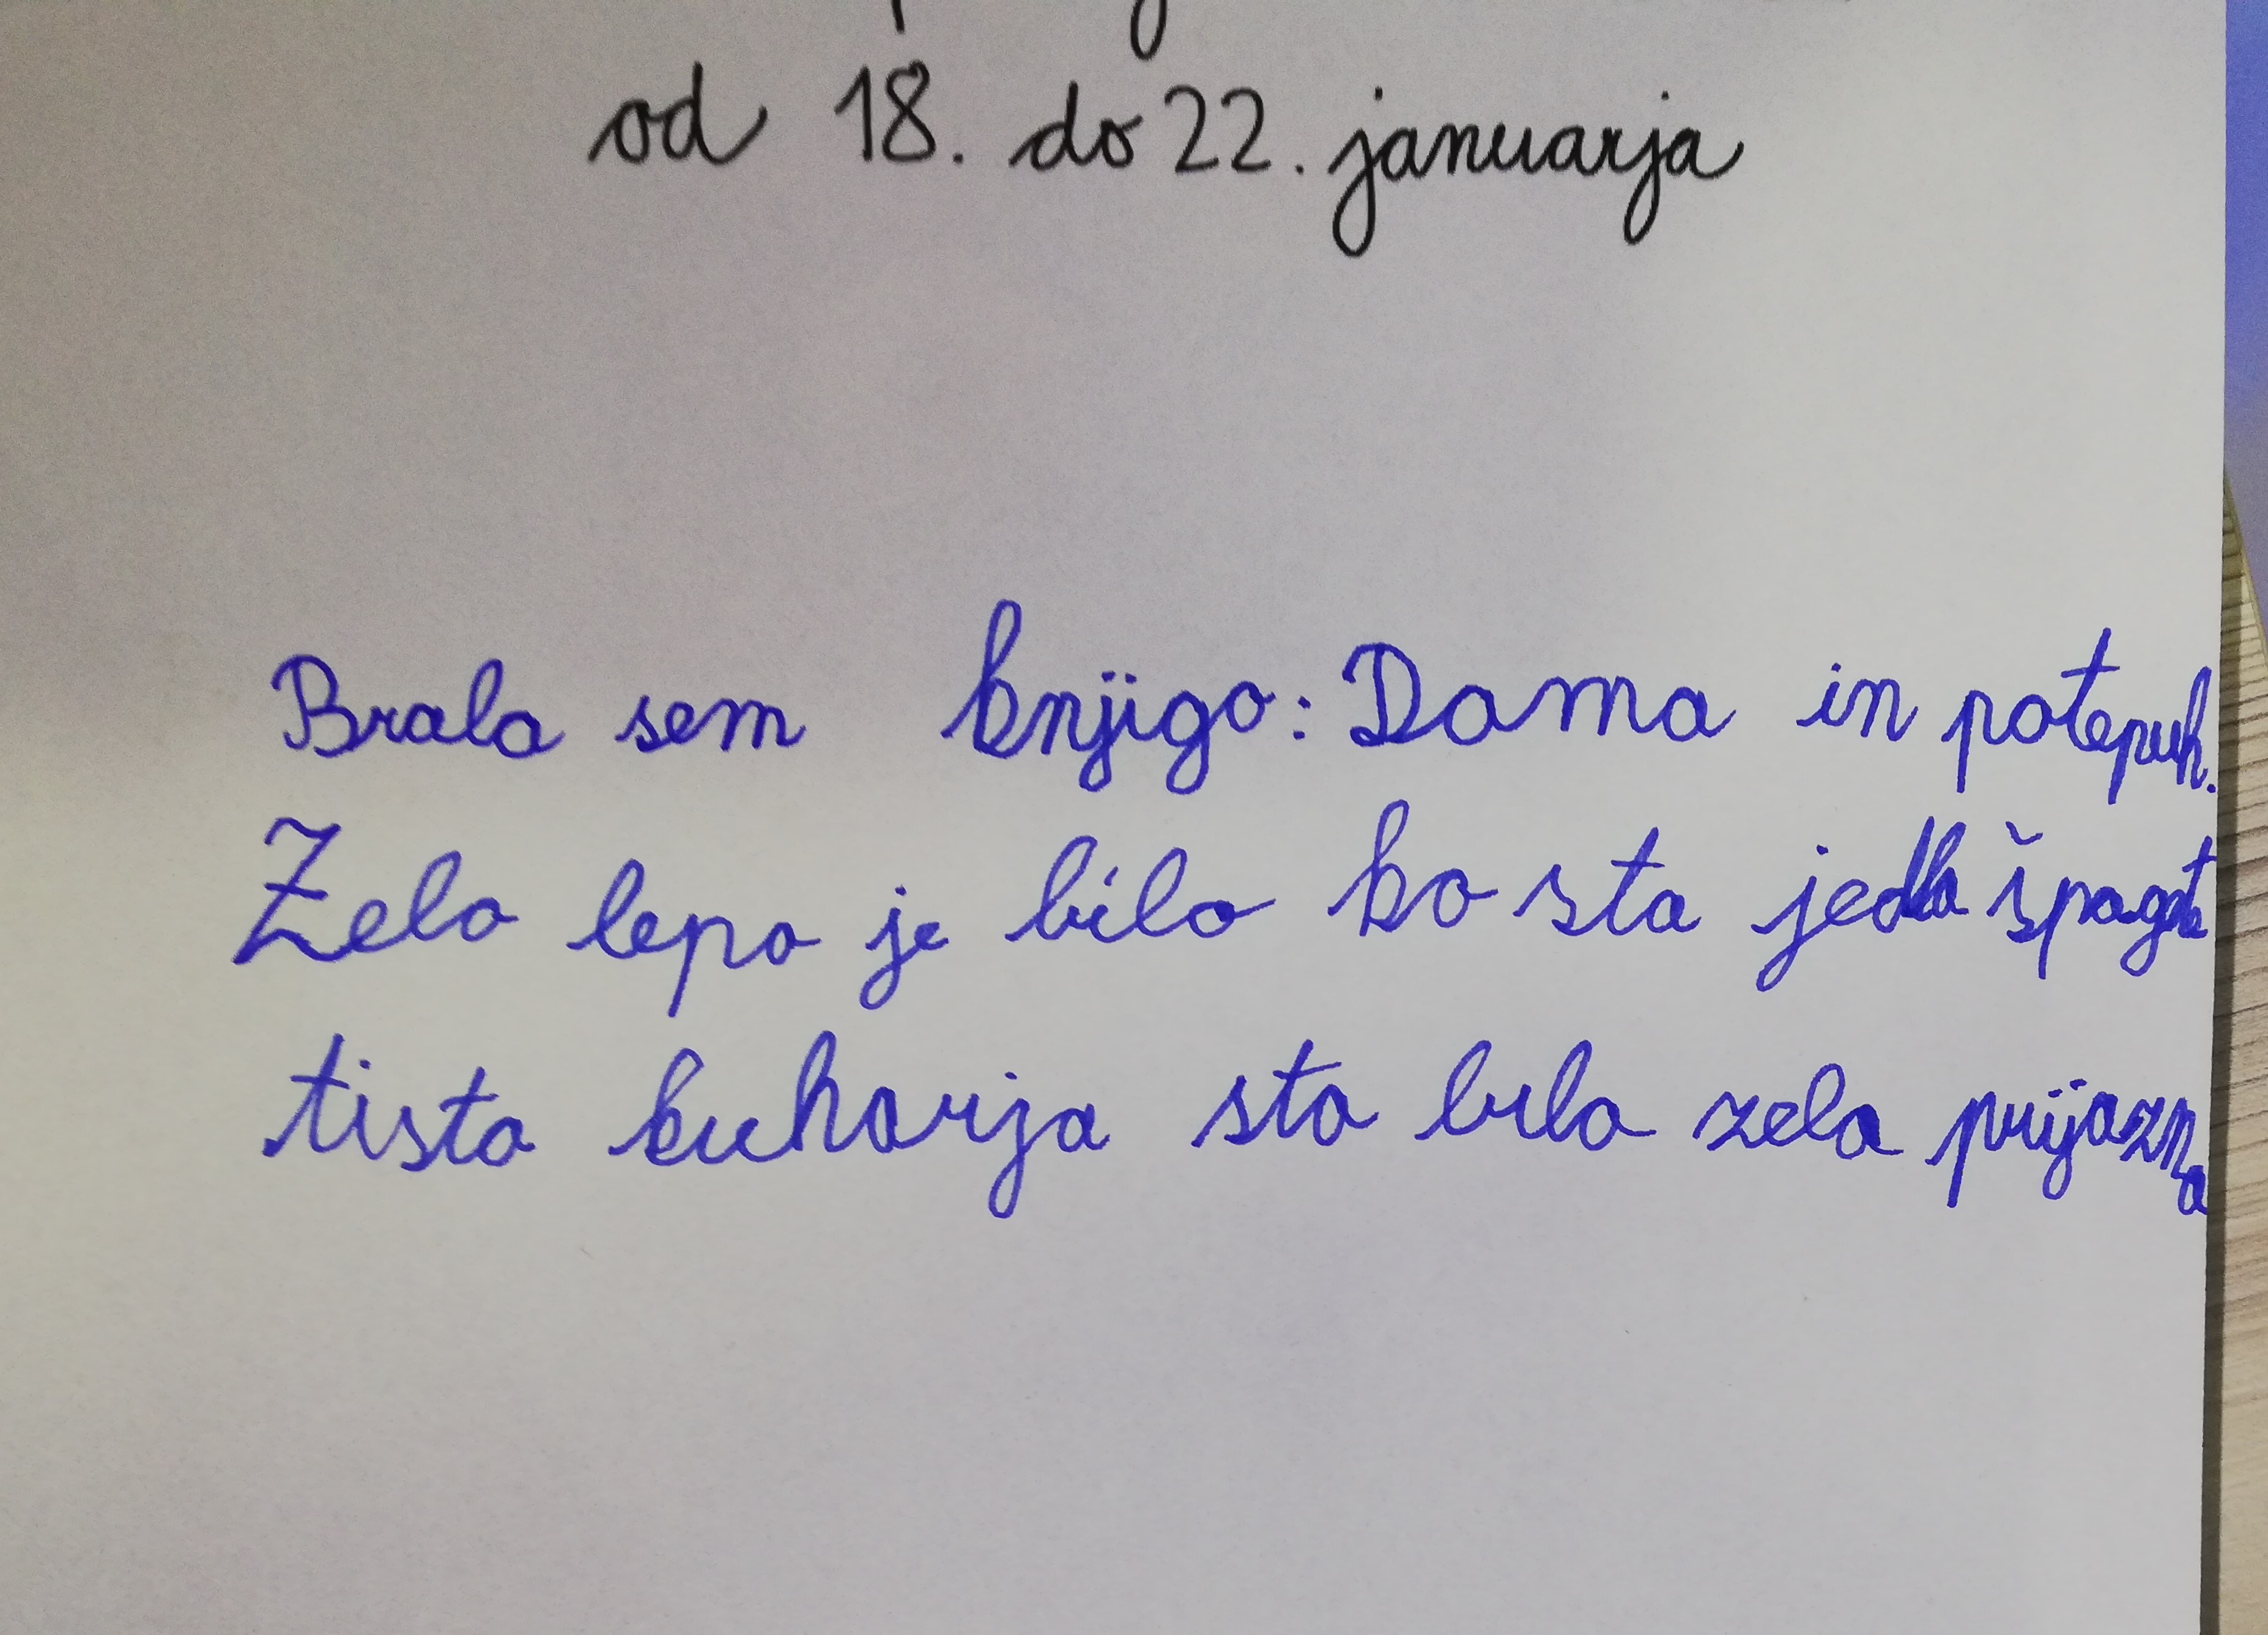 od 18. do 22. januarja
Brala sem knjigo: Dama in potepuh.
Zelo lepo je bilo ko sta jedla špagete
tista kuharja sta bila zelo prijazna